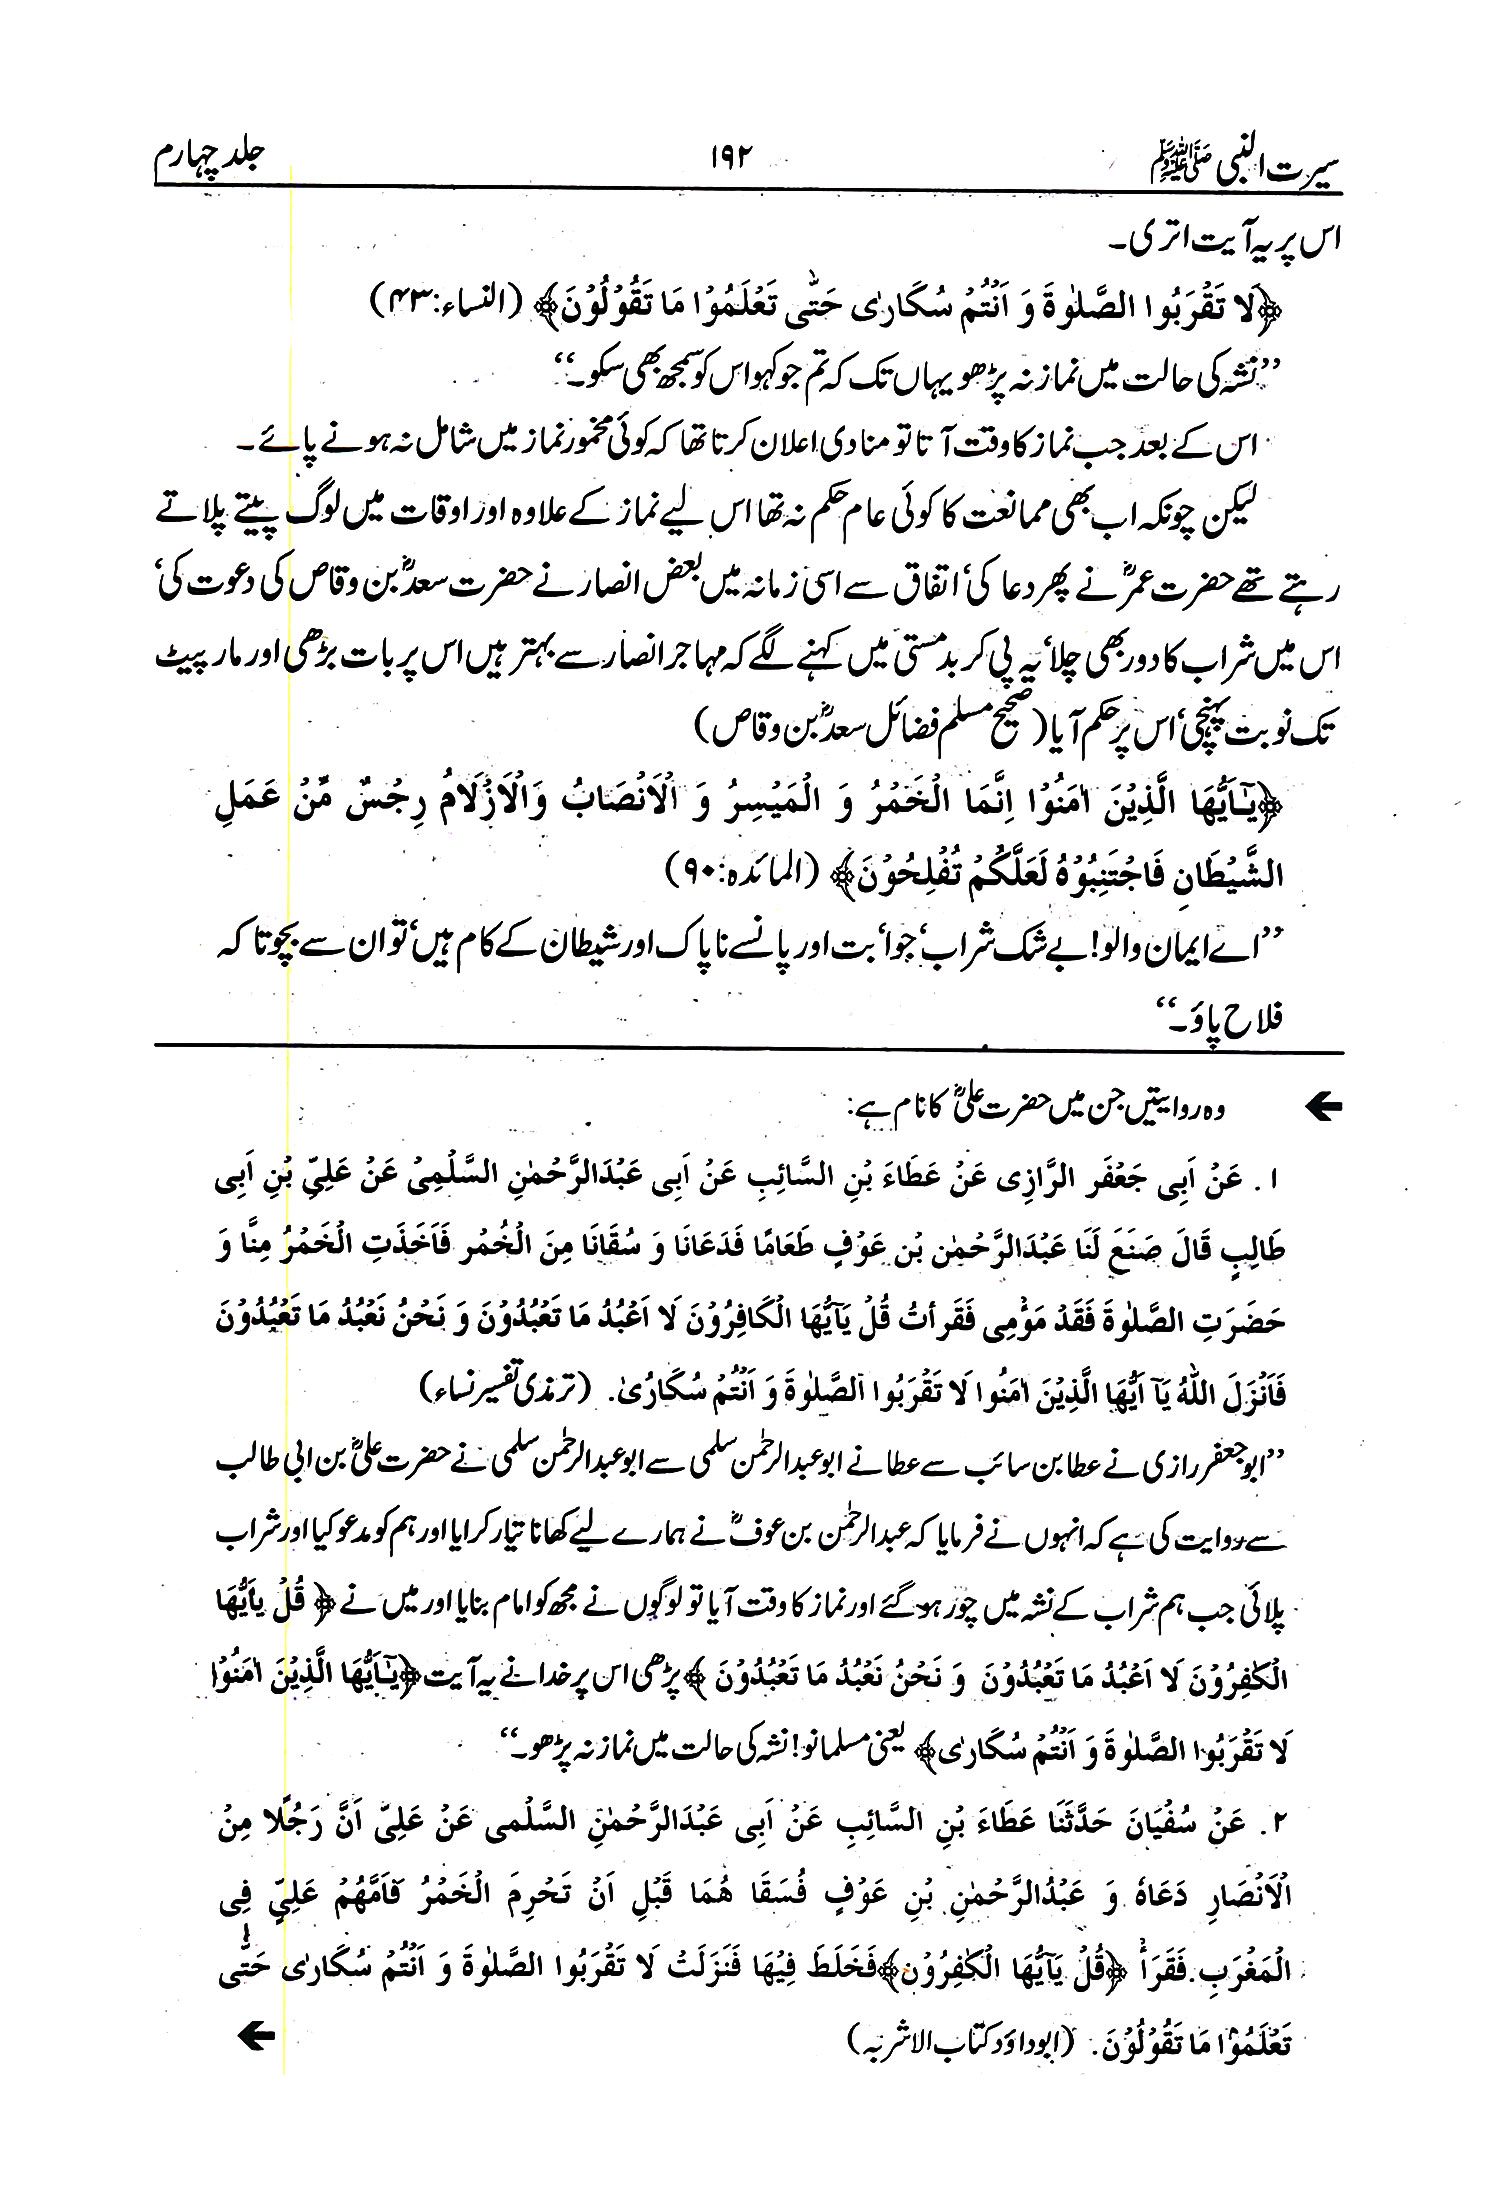 سیرت النبی ﷺ ۱۹۲ جلد چہارم
اس پر یہ آیت اتری۔
﴿لَا تَقْرَبُوا الصَّلٰوةَ وَ اَنْتُمْ سُكَارٰى حَتّٰى تَعْلَمُوْا مَا تَقُوْلُوْنَ﴾ (النساء:۴۳)
’’نشہ کی حالت میں نماز نہ پڑھو یہاں تک کہ تم جو کہو اس کو سمجھ بھی سکو۔‘‘
اس کے بعد جب نماز کا وقت آتا تو منادی اعلان کرتا تھا کہ کوئی مخمور نماز میں شامل نہ ہونے پائے۔
لیکن چونکہ اب بھی ممانعت کا کوئی عام حکم نہ تھا اس لیے نماز کے علاوہ اور اوقات میں لوگ پیتے پلاتے
رہتے تھے حضرت عمرؓ نے پھر دعا کی‘ اتفاق سے اسی زمانہ میں بعض انصار نے حضرت سعدؓ بن وقاص کی دعوت کی‘
اس میں شراب کا دور بھی چلا‘ یہ پی کر بدمستی میں کہنے لگے کہ مہاجر انصار سے بہتر ہیں اس پر بات بڑھی اور مار پیٹ
تک نوبت پہنچی‘ اس پر حکم آیا (صحیح مسلم فضائل سعدؓ بن وقاص)
﴿يٰٓاَيُّهَا الَّذِيْنَ اٰمَنُوْا اِنَّمَا الْخَمْرُ وَ الْمَيْسِرُ وَ الْاَنْصَابُ وَالْاَزْلَامُ رِجْسٌ مِّنْ عَمَلِ
الشَّيْطَانِ فَاجْتَنِبُوْهُ لَعَلَّكُمْ تُفْلِحُوْنَ﴾ (المائدہ:۹۰)
’’اے ایمان والو! بے شک شراب‘ جوا‘ بت اور پانسے ناپاک اور شیطان کے کام ہیں‘ تو ان سے بچو تاکہ
فلاح پاؤ۔‘‘
← وہ روایتیں جن میں حضرت علیؓ کا نام ہے:
۱. عَنْ اَبِى جَعْفَر الرَّازِى عَنْ عَطَاءَ بْنِ السَّائِبِ عَنْ اَبِى عَبْدَالرَّحْمٰنِ السَّلْمِىْ عَنْ عَلِيِّ بْنِ اَبِى
طَالِبٍ قَالَ صَنَعَ لَنَا عَبْدَالرَّحْمٰن بْن عَوْفٍ طَعَامًا فَدَعَانَا وَ سُقَانَا مِنَ الْخُمْر فَاَخَذَتِ الْخَمْرُ مِنَّا وَ
حَضَرَتِ الصَّلٰوةَ فَقَدْ مَوْمِى فَقَرأتُ قُلْ يَآيُّهَا الْكَافِرُوْنَ لَا اَعْبُدُ مَا تَعْبُدُوْنَ وَ نَحْنُ نَعْبُدُ مَا تَعْبُدُوْنَ
فَاَنْزَلَ اللهُ يَآ اَيُّهَا الَّذِيْنَ اٰمَنُوا لَا تَقْرَبُوا الصَّلٰوةَ وَ اَنْتُمْ سُكَارٰىْ. (ترمذی تفسیر نساء)
’’ابوجعفر رازی نے عطا بن سائب سے عطا نے ابوعبدالرحمٰن سلمی سے ابوعبدالرحمٰن سلمی نے حضرت علیؓ بن ابی طالب
سے روایت کی ہے کہ انہوں نے فرمایا کہ عبدالرحمٰن بن عوفؓ نے ہمارے لیے کھانا تیار کرایا اور ہم کو مدعو کیا اور شراب
پلائی جب ہم شراب کے نشہ میں چور ہو گئے اور نماز کا وقت آیا تو لوگوں نے مجھ کو امام بنایا اور میں نے ﴿ قُلْ يٰاَيُّهَا
الْكٰفِرُوْنَ لَا اَعْبُدُ مَا تَعْبُدُوْنَ وَ نَحْنُ نَعْبُدُ مَا تَعْبُدُوْنَ ﴾ پڑھی اس پر خدا نے یہ آیت ﴿يٰٓاَيُّهَا الَّذِيْنَ اٰمَنُوْا
لَا تَقْرَبُوا الصَّلٰوةَ وَ اَنْتُمْ سُكَارٰى﴾ یعنی مسلمانو! نشہ کی حالت میں نماز نہ پڑھو۔‘‘
۲. عَنْ سُفْيَانَ حَدَّثَنَا عَطَاءَ بْنِ السَّائِبِ عَنْ اَبِى عَبْدَالرَّحْمٰنِ السَّلْمى عَنْ عَلِىّ اَنَّ رَجُلًا مِنْ
الْاَنْصَارِ دَعَاهُ وَ عَبْدُالرَّحْمٰنِ بْنِ عَوْفٍ فُسَقَا هُمَا قَبْلِ اَنْ تَحْرِمَ الْخَمْرُ فَاَمَّهُمْ عَلِيٍّ فِى
الْمَغْرَبِ فَقَرَأَ ﴿قُلْ يَآيُّهَا الْكٰفِرُوْن﴾ فَخَلَطَ فِيْهَا فَنَزَلَتْ لَا تَقْرَبُوا الصَّلٰوةَ وَ اَنْتُمْ سُكَارٰى حَتّٰى
تَعْلَمُوْا مَا تَقُوْلُوْنَ. (ابوداؤد کتاب الاشربہ) ←